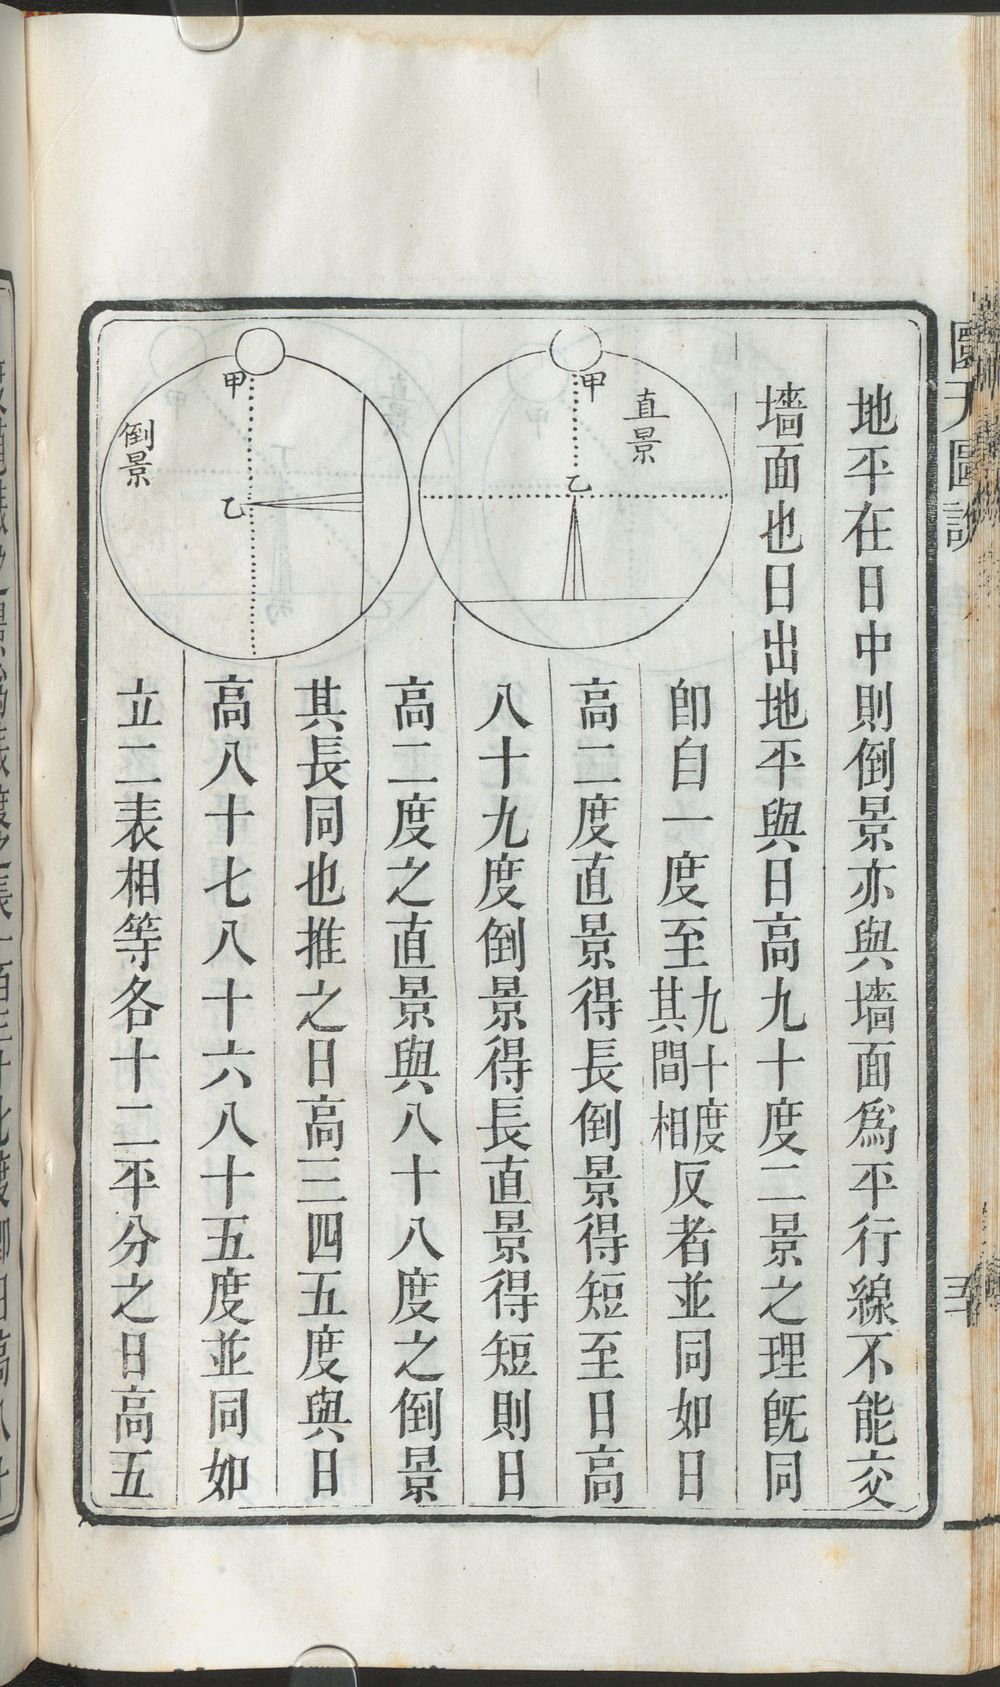 地平在日中則倒景亦與墻面爲平行線不能交
墻面也日出地平與日高九十度二景之理旣同
卽自一度至九十度其間相反者並同如日
高二度直景得長倒景得短至日高
八十九度倒景得長直景得短則日
高二度之直景與八十八度之倒景
其長同也推之日高三四五度與日
高八十七八十六八十五度並同如
立二表相等各十二平分之日高五
直景
甲
乙
甲
乙
倒景
圖說